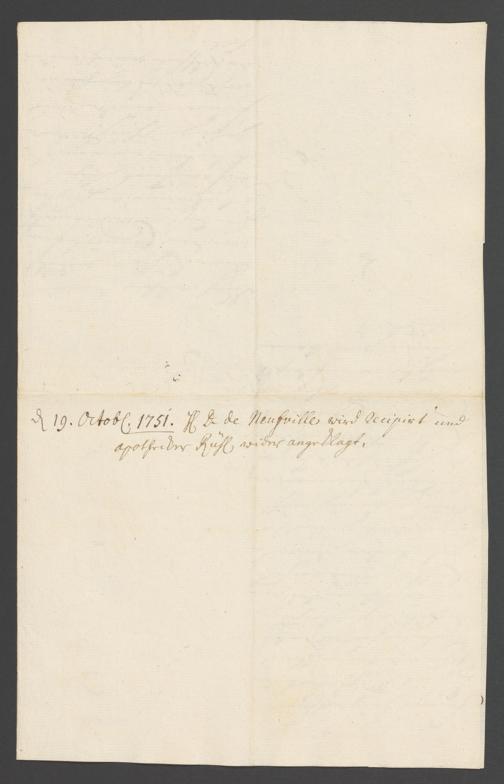 d 19. Octobr. 1751. H Dr. de Neufville wird recipirt und
apotheker Rühl wider angeklagt.